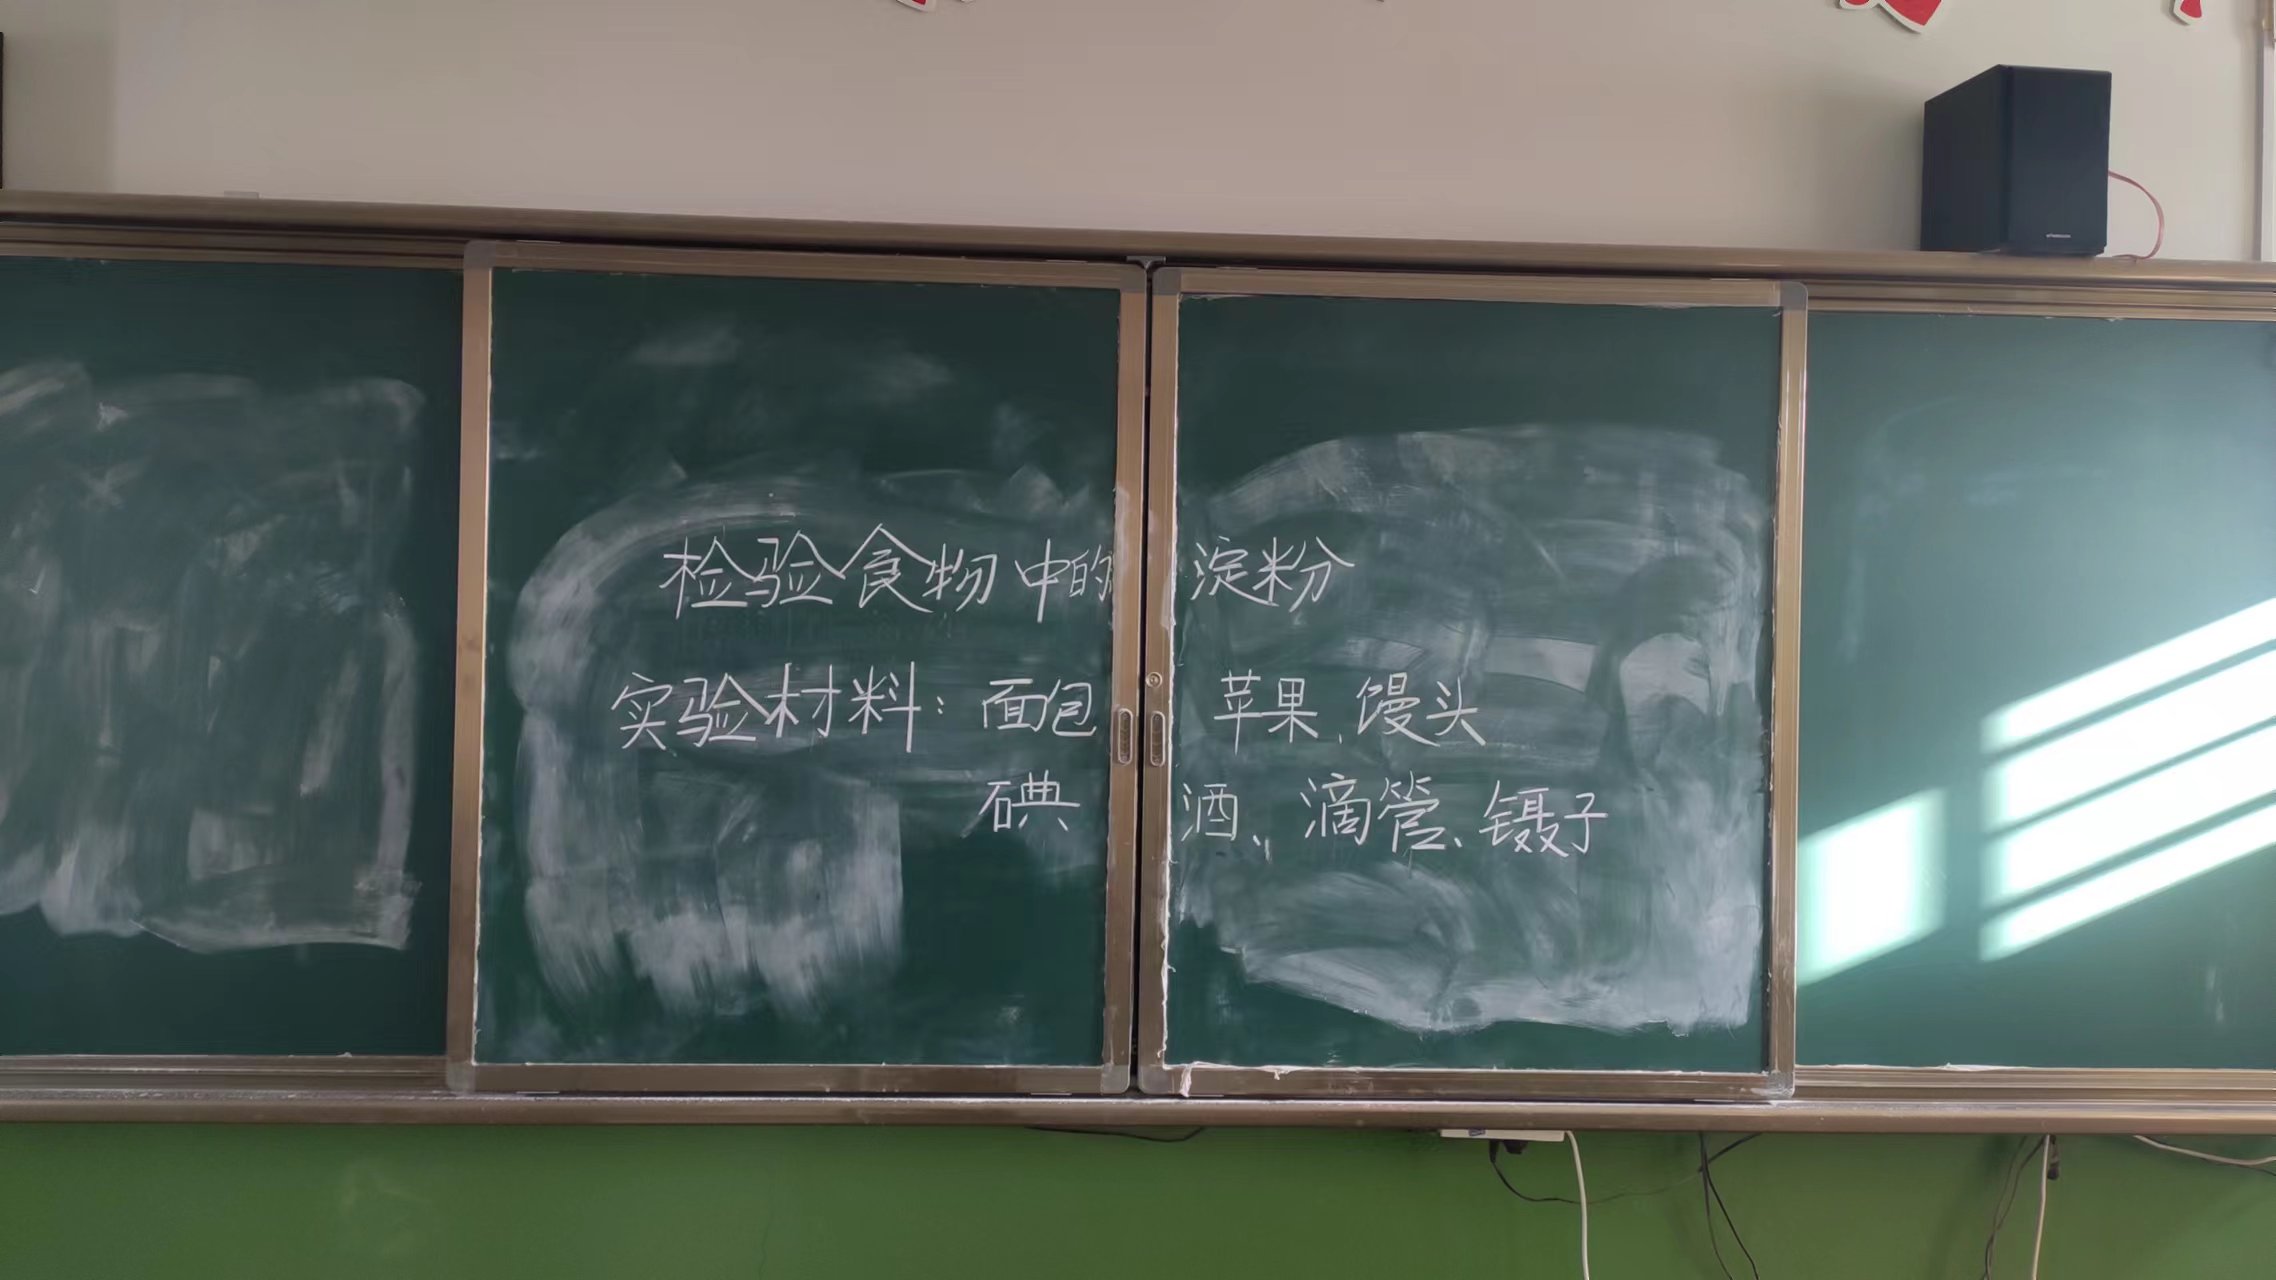 检验食物中的淀粉
实验材料:面包 苹果、馒头
碘酒、滴管、镊子